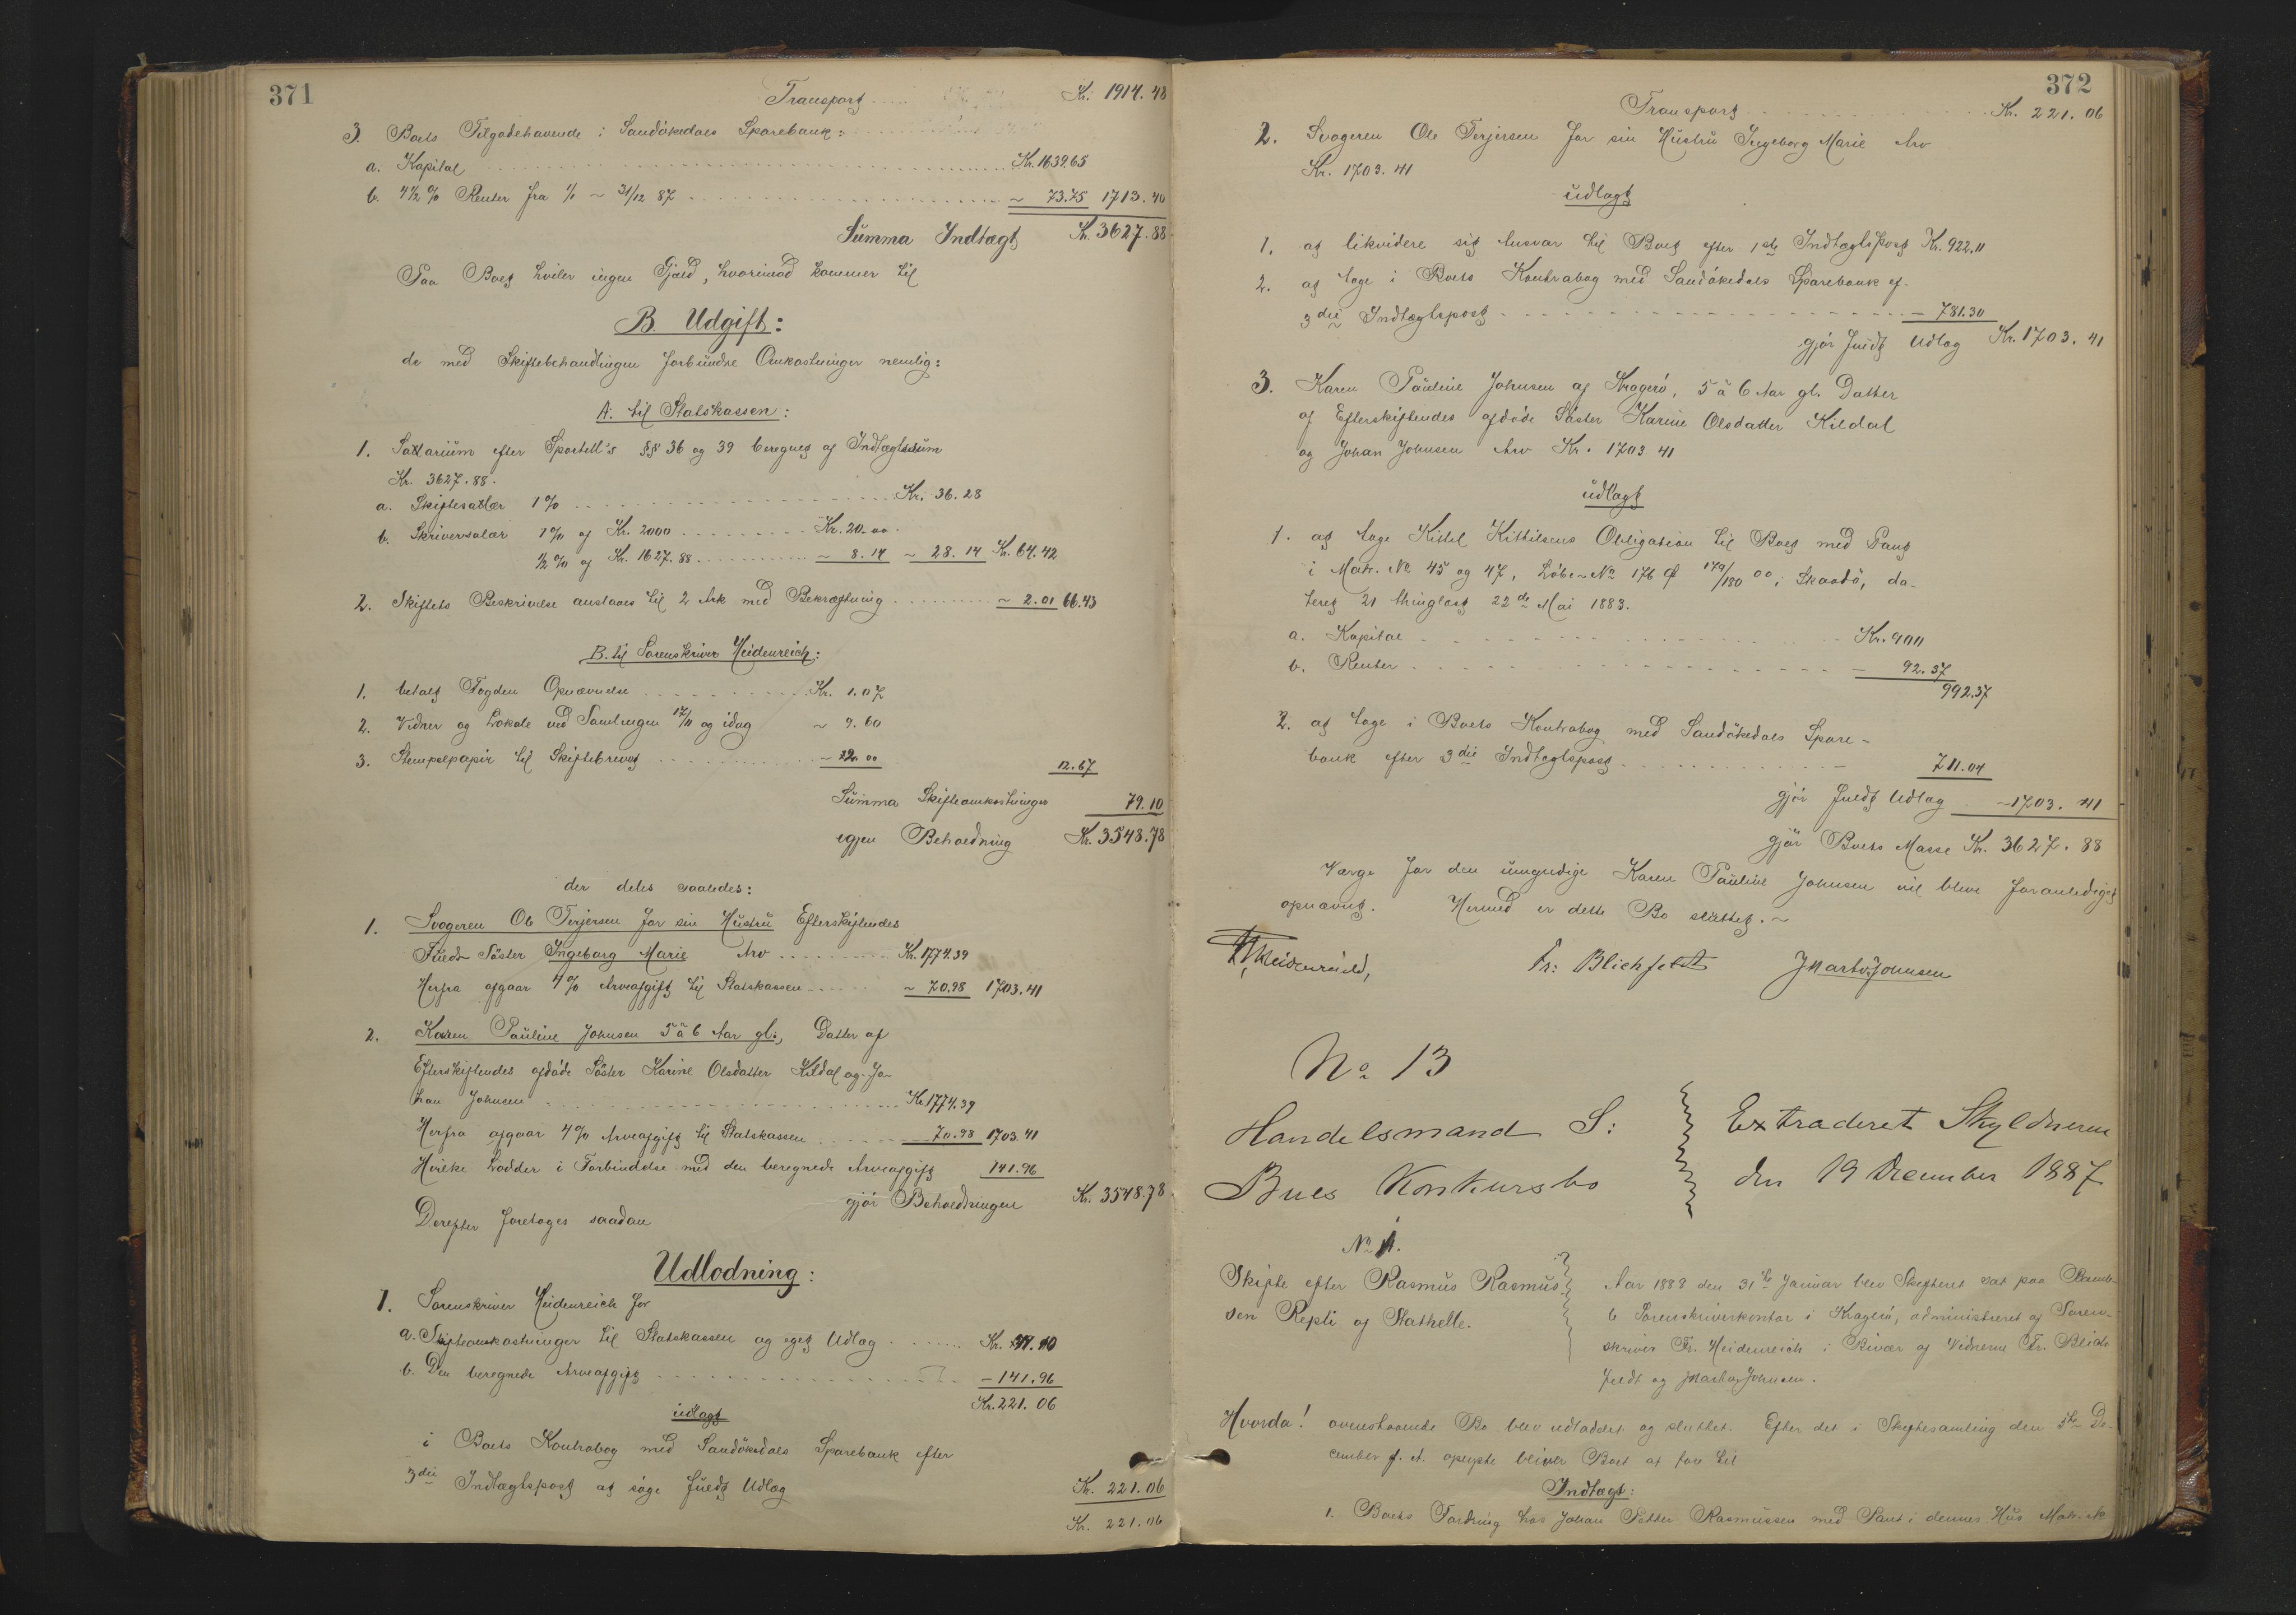 371
Transport Kr. 1914.48
3. Boets Tilgodehavende i Sandökedals Sparebank:
a. Kapital Kr. 1639.65
b. 4½ % Renter fra 1/1 ~ 31/12 87 ~ 73.75 1713.40
Summa Indtægt Kr. 3627.88
Paa Boet hviler ingen Gjæld, hvorimod kommer til
B. Udgift:
de med Skiftebehandlingen forbundne Omkostninger nemlig:
A. til Statskassen:
1. Salarium efter Sportell's §§ 36 og 39 beregnet af Indtægtssum
Kr. 3627.88.
a. Skiftesalær 1 % Kr. 36.28
b. Skriversalær 1 % af Kr. 2000 Kr. 20.00
½ % af Kr. 1627.88 ~ 8.14 ~ 28.14 Kr. 64.42
2. Skiftets Beskrivelse antages til 2 Ark med Bekræftning ~ 2.01 66.43
B. til Sorenskriver Heidenreich:
1. betalt Fogden Opnævnelse Kr. 1.07
2. Vidner og Lokale ved Samlingen 17/11 og idag ~ 9.60
3. Stempelpapir til Skiftebrevet ~ 2.00
12.67
Summa Skifteomkostninger 79.10
igjen Beholdning Kr. 3548.78
der deles saaledes:
1. Svogeren Ole Terjersen for sin Hustru Efterskiftendes
Fulds Söster Ingeborg Marie Arv Kr. 1774.39
Herfra afgaar 4 % Arveafgift til Statskassen ~ 70.98 1703.41
2. Karen Pauline Johnsen 5 à 6 Aar gl., Datter af
Efterskiftendes afdöde Söster Karine Olsdatter Kildal og Jo-
han Johnsen Kr. 1774.39
Herfra afgaar 4 % Arveafgift til Statskassen 70.98 1703.41
Hvilke Lodder i Forbindelse med den beregnede Arveafgift 141.96
gjör Beholdningen Kr. 3548.78
Derefter foretages saadan
Udlodning:
1. Sorenskriver Heidenreich for
a. Skifteomkostninger til Statskassen og eget Udlæg Kr. 79.10
b. Den beregnede Arveafgift - 141.96
Kr. 221.06
udlagt
i Boets Kontrabog med Sandökedals Sparebank efter
3die Indtægtspost at söge fuldt Udlæg Kr. 221.06
Kr. 221.06
372
Transport Kr. 221.06
2. Svogeren Ole Terjersen for sin Hustru Ingeborg Marie Arv
Kr. 1703.41
udlagt
1. at likvidere sit Ansvar til Boet efter 1ste Indtægtspost Kr. 922.11
2. at tage i Boets Kontrabog med Sandökedals Sparebank ef.
3die Indtægtspost - 781.30
gjör fuldt Udlæg Kr. 1703.41
3. Karen Pauline Johnsen af Kragerö, 5 à 6 Aar gl. Datter
af Efterskiftendes afdöde Söster Karine Olsdatter Kildal
og Johan Johnsen Arv Kr. 1703.41
udlagt
1. at tage Kittel Kittilsens Obligation til Boet med Pant
i Matr. No 45 og 47, Löbe-No 176 og 179/180 i Skaadö, da-
teret 21 thinglæst 22de Mai 1883.
a. Kapital Kr. 900
b. Renter - 92.37
992.37
2. at tage i Boets Kontrabog med Sandökedals Spare-
bank efter 3die Indtægtspost - 711.04
gjör fuldt Udlæg ~ 1703.41
gjör Boets Masse Kr. 3627.88
Værge for den umyndige Karen Pauline Johnsen vil blive foranlediget
opnævnt. Hermed er dette Bo sluttet. ~
Heidenreich, Fr: Blichfeldt J Martv. Johnsen
No 13
Handelsmand S: Extraderet Skyldneren
Bues Konkursbo den 19 December 1887
No 1.
Skifte efter Rasmus Rasmus-
sen Repti af Stathelle.
Aar 1888 den 31te Januar blev Skifteret sat paa Bamb-
le Sorenskriverkontor i Kragerö, administreret af Soren-
skriver Fr. Heidenreich i Bivær af Vidnerne Fr. Blich-
feldt og J Martv. Johnsen.
Hvorda! ovenstaaende Bo blev udloddet og sluttet. Efter det i Skiftesamling den 5te De-
cember f. A. oplyste bliver Boet at före til
Indtægt:
1. Boets Fordring hos Johan Petter Rasmussen med Pant i dennes Hus Matr. No